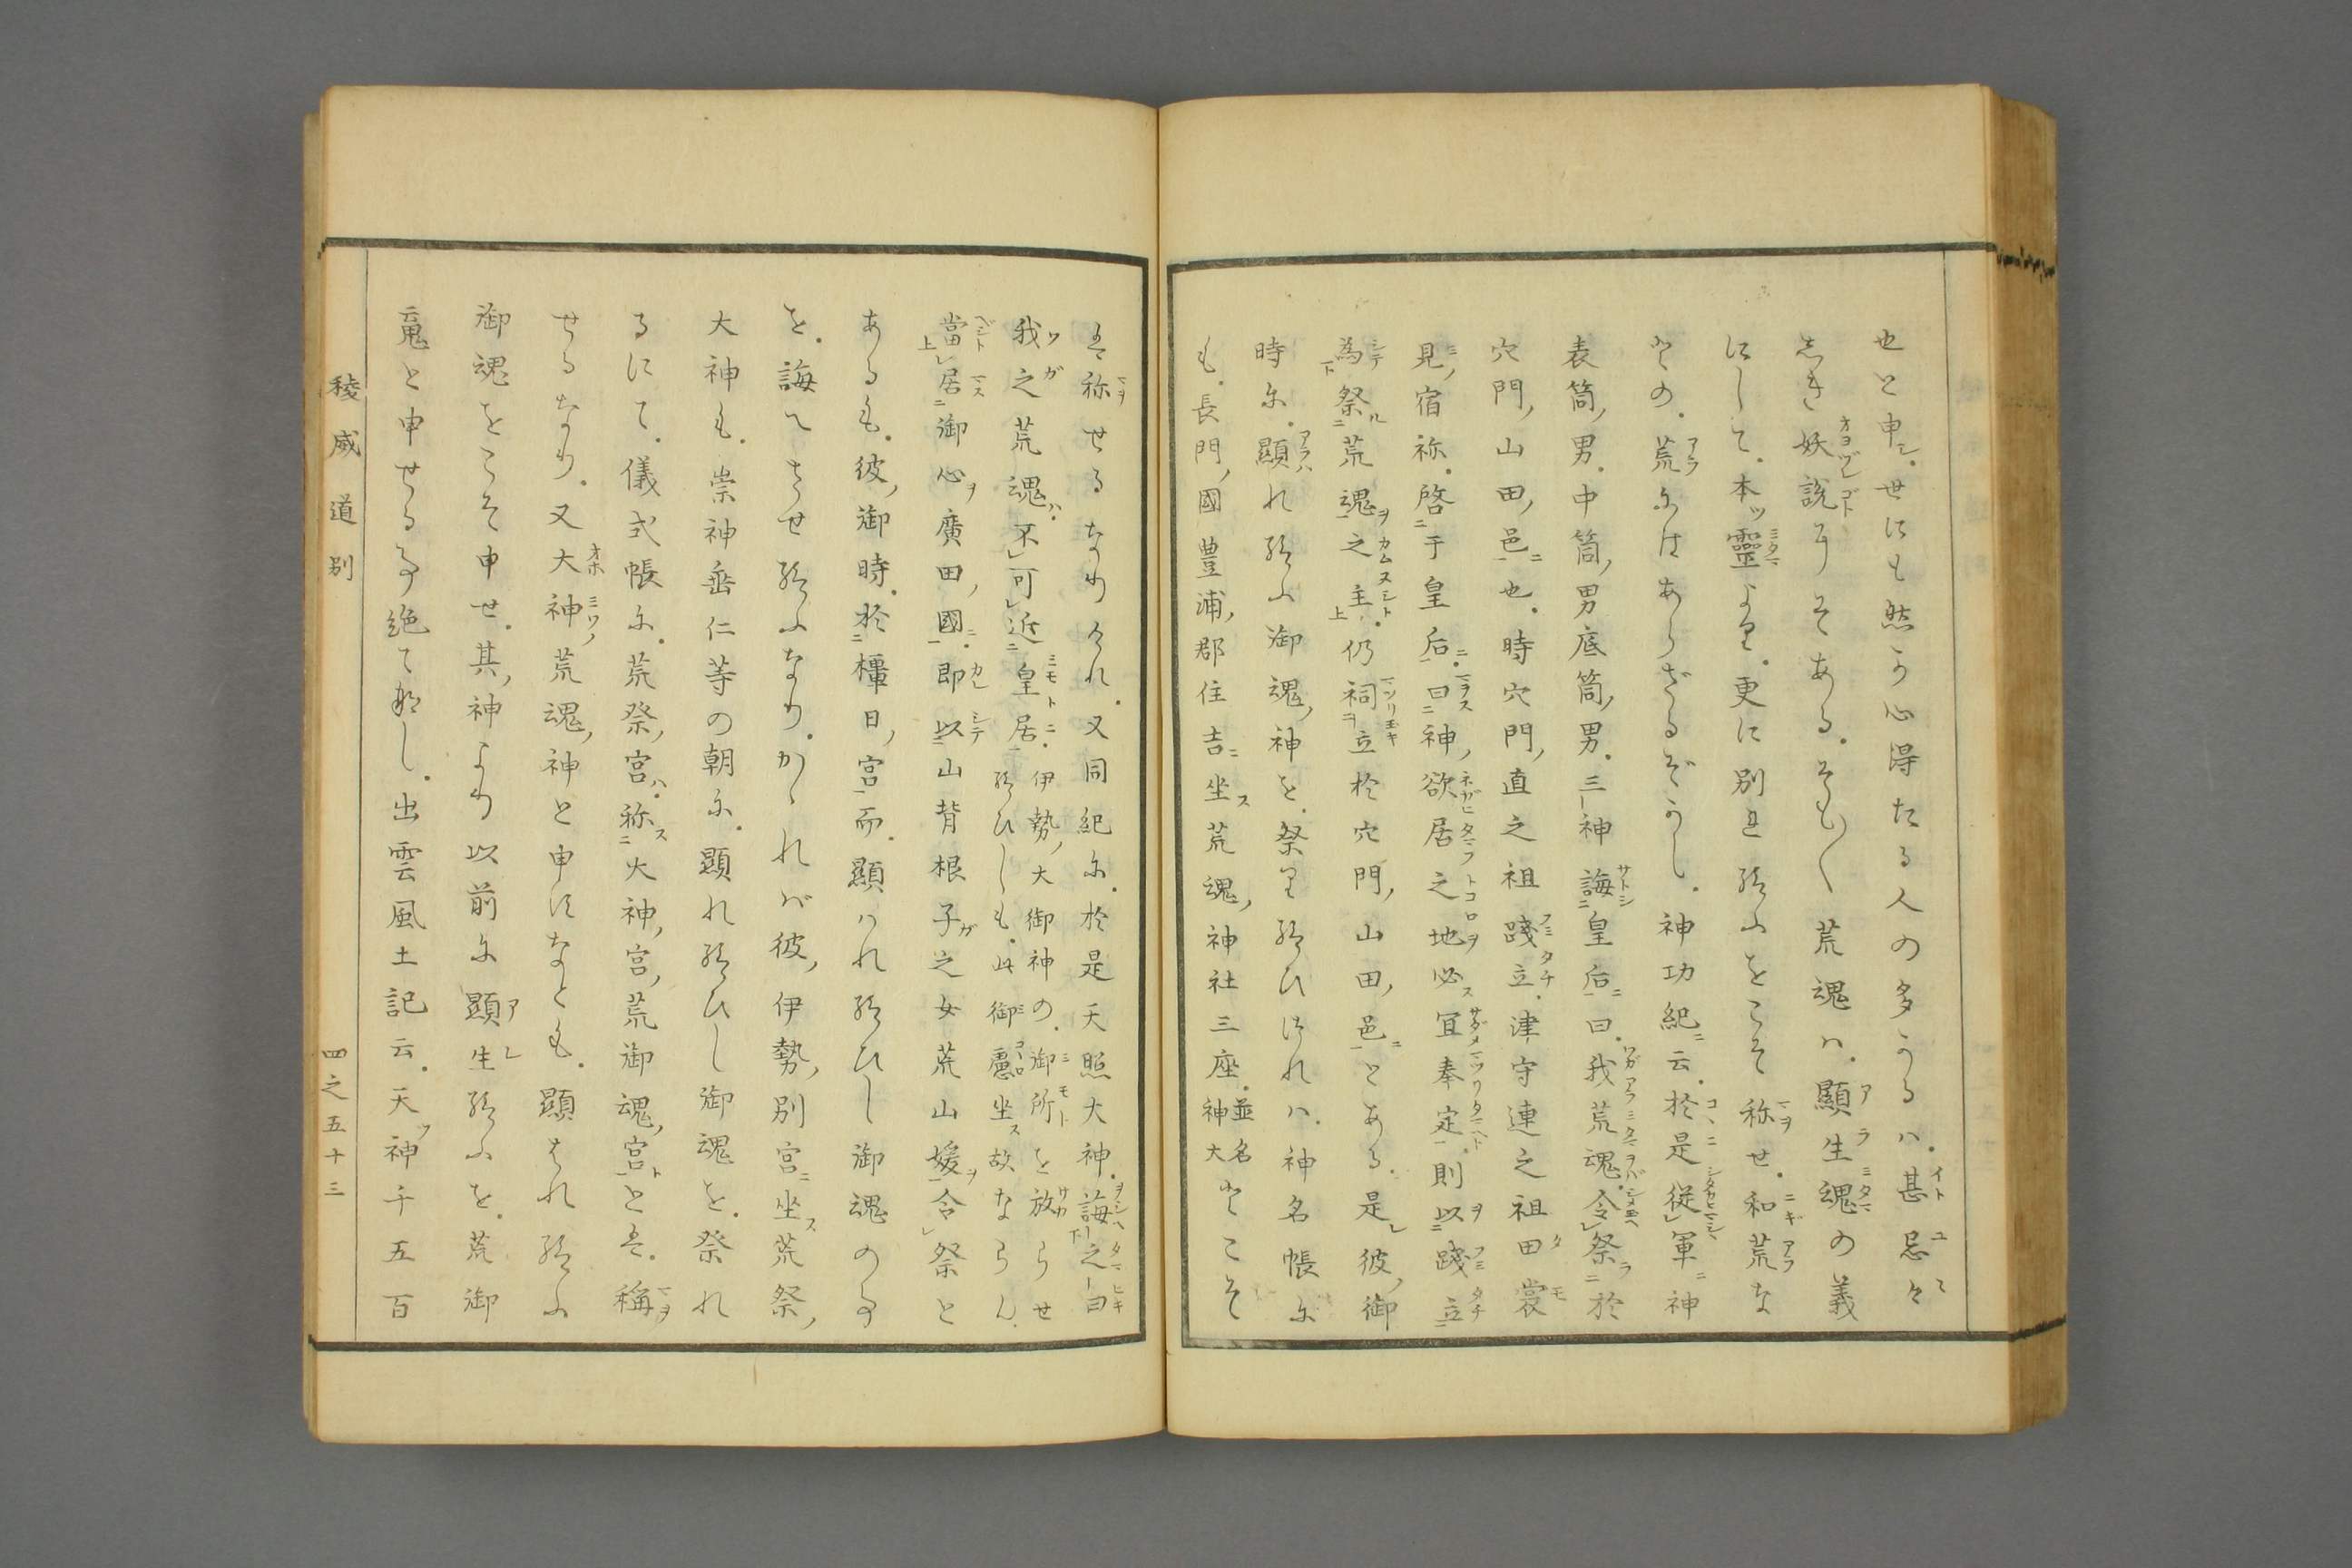 也と申シ。世にも然か心得たる人の多かるハ。甚忌々
しき妖説にそある。そも〳〵荒魂ハ。顯生魂の義
にして。本ツ靈より。更に別れ給ふをこそ称せ。和荒な
どの。荒にはあらざるぞかし。神功紀ニ云。於是従軍神
表筒男。中筒男底筒男。三神誨皇后曰。我荒魂令祭於
穴門山田邑也。時穴門直之祖踐立。津守連之祖田裳
見宿祢。啓于皇后曰。神欲居之地必宜奉定則以踐立
為祭荒魂之主。仍祠立於穴門山田邑とある。是レ彼御
時尓。顯れ給ふ御魂神を。祭り給ひけれハ。神名帳尓
も。長門國豊浦郡住吉ニ坐ス荒魂神社三座。並名神大とこそ
は称せるなりけれ。又同紀尓。於是天照大神。誨之曰
我之荒魂ハ。不可近皇居。伊勢大御神の。御所を放らせ給ひしも。此御慮坐ス故ならん。
當居御心ヲ廣田國ニ。即以山背根子ガ之女荒山媛ヲ令祭と
あるも。彼御時。於橿日宮而。顯ハれ給ひし御魂の事
を。誨へさせ給ふなり。かゝれバ彼伊勢別宮ニ坐ス荒祭
大神も。崇神垂仁等の朝尓。顯れ給ひし御魂を。祭れ
るにて。儀式帳尓。荒祭宮ハ。称ス大神宮荒御魂宮トと云。稱
せるなり。又大神荒魂神と申すなとも。顯はれ給ふ
御魂をこそ申せ。其神より以前尓顯生給ふを。荒御
竟と申せる事絶て無し。出雲風土記云。天ツ神千五百
稜威道別
四之五十三